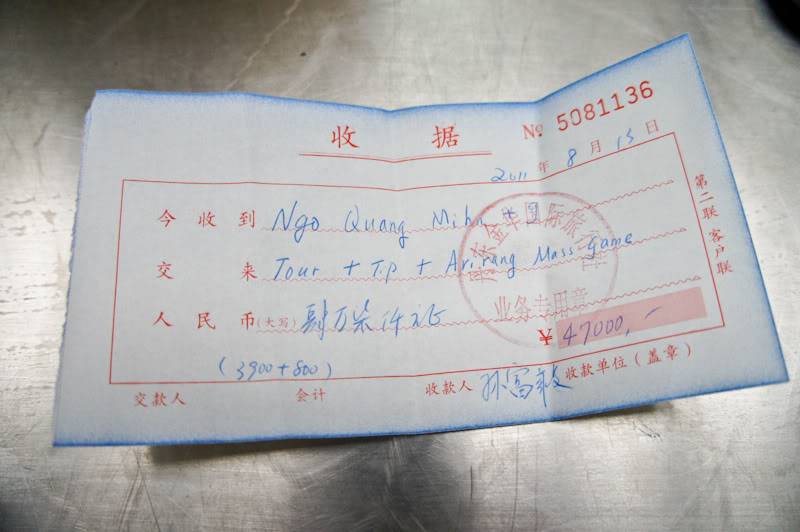 收据 № 5081136
2011 年 8 月 15 日
今收到 Ngo Quang Mihn
交来 Tour + T.P + Arirang Mass game
人民币(大写) 肆万柒仟元正
¥ 47000,-
(3900+800)
交款人 会计 收款人 孙富 收款单位(盖章)
第二联 客户联
金华国际旅
业务专用章